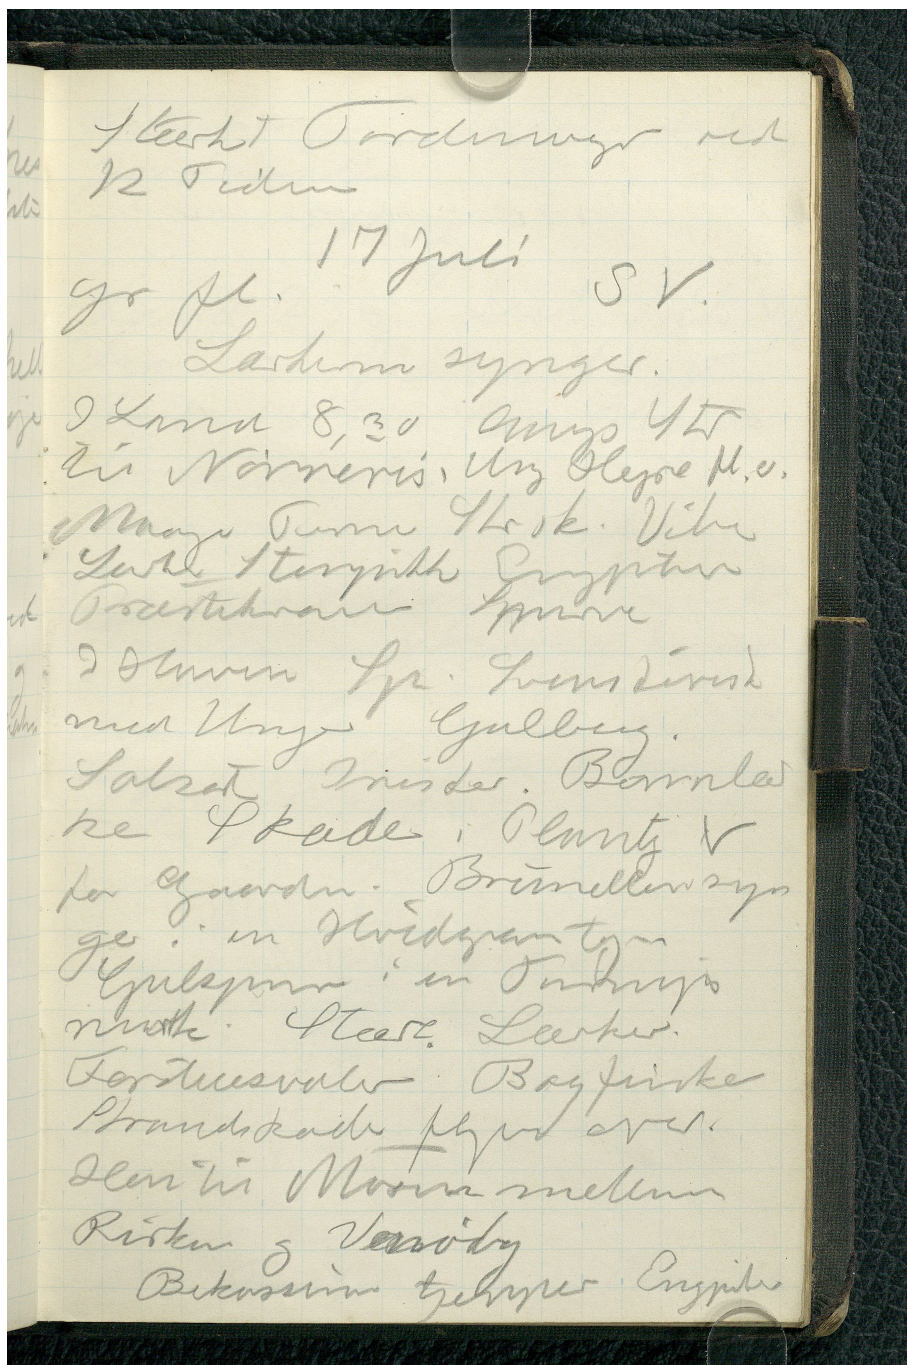 Stærkt Tordenvejr ved
12 Tiden
17 Juli
Gr fl. SV.
Lærkerne synger.
I Land 8,30 Str
til Nørrerevs. Ung Hejre fl. o.
Maager Terner Str sk. Vibe
Lærke Stenpikk Engpiber
Præstekrave Spurve
I Haven Spr. Svensk irisk
med Unger Gulbug.
Solsort Irisker. Bomlær
ke Skade i Plantg V
for Gaarden. Brunellen syn
ger i en Hvidgran
Gulspurv i en Turnips
mark. Stær. Lærker.
Forstuesvaler Bogfinke
Strandskade flyver over.
Hen til Mosen mellem
Risken og Venøby
Bekassiner Engpiber